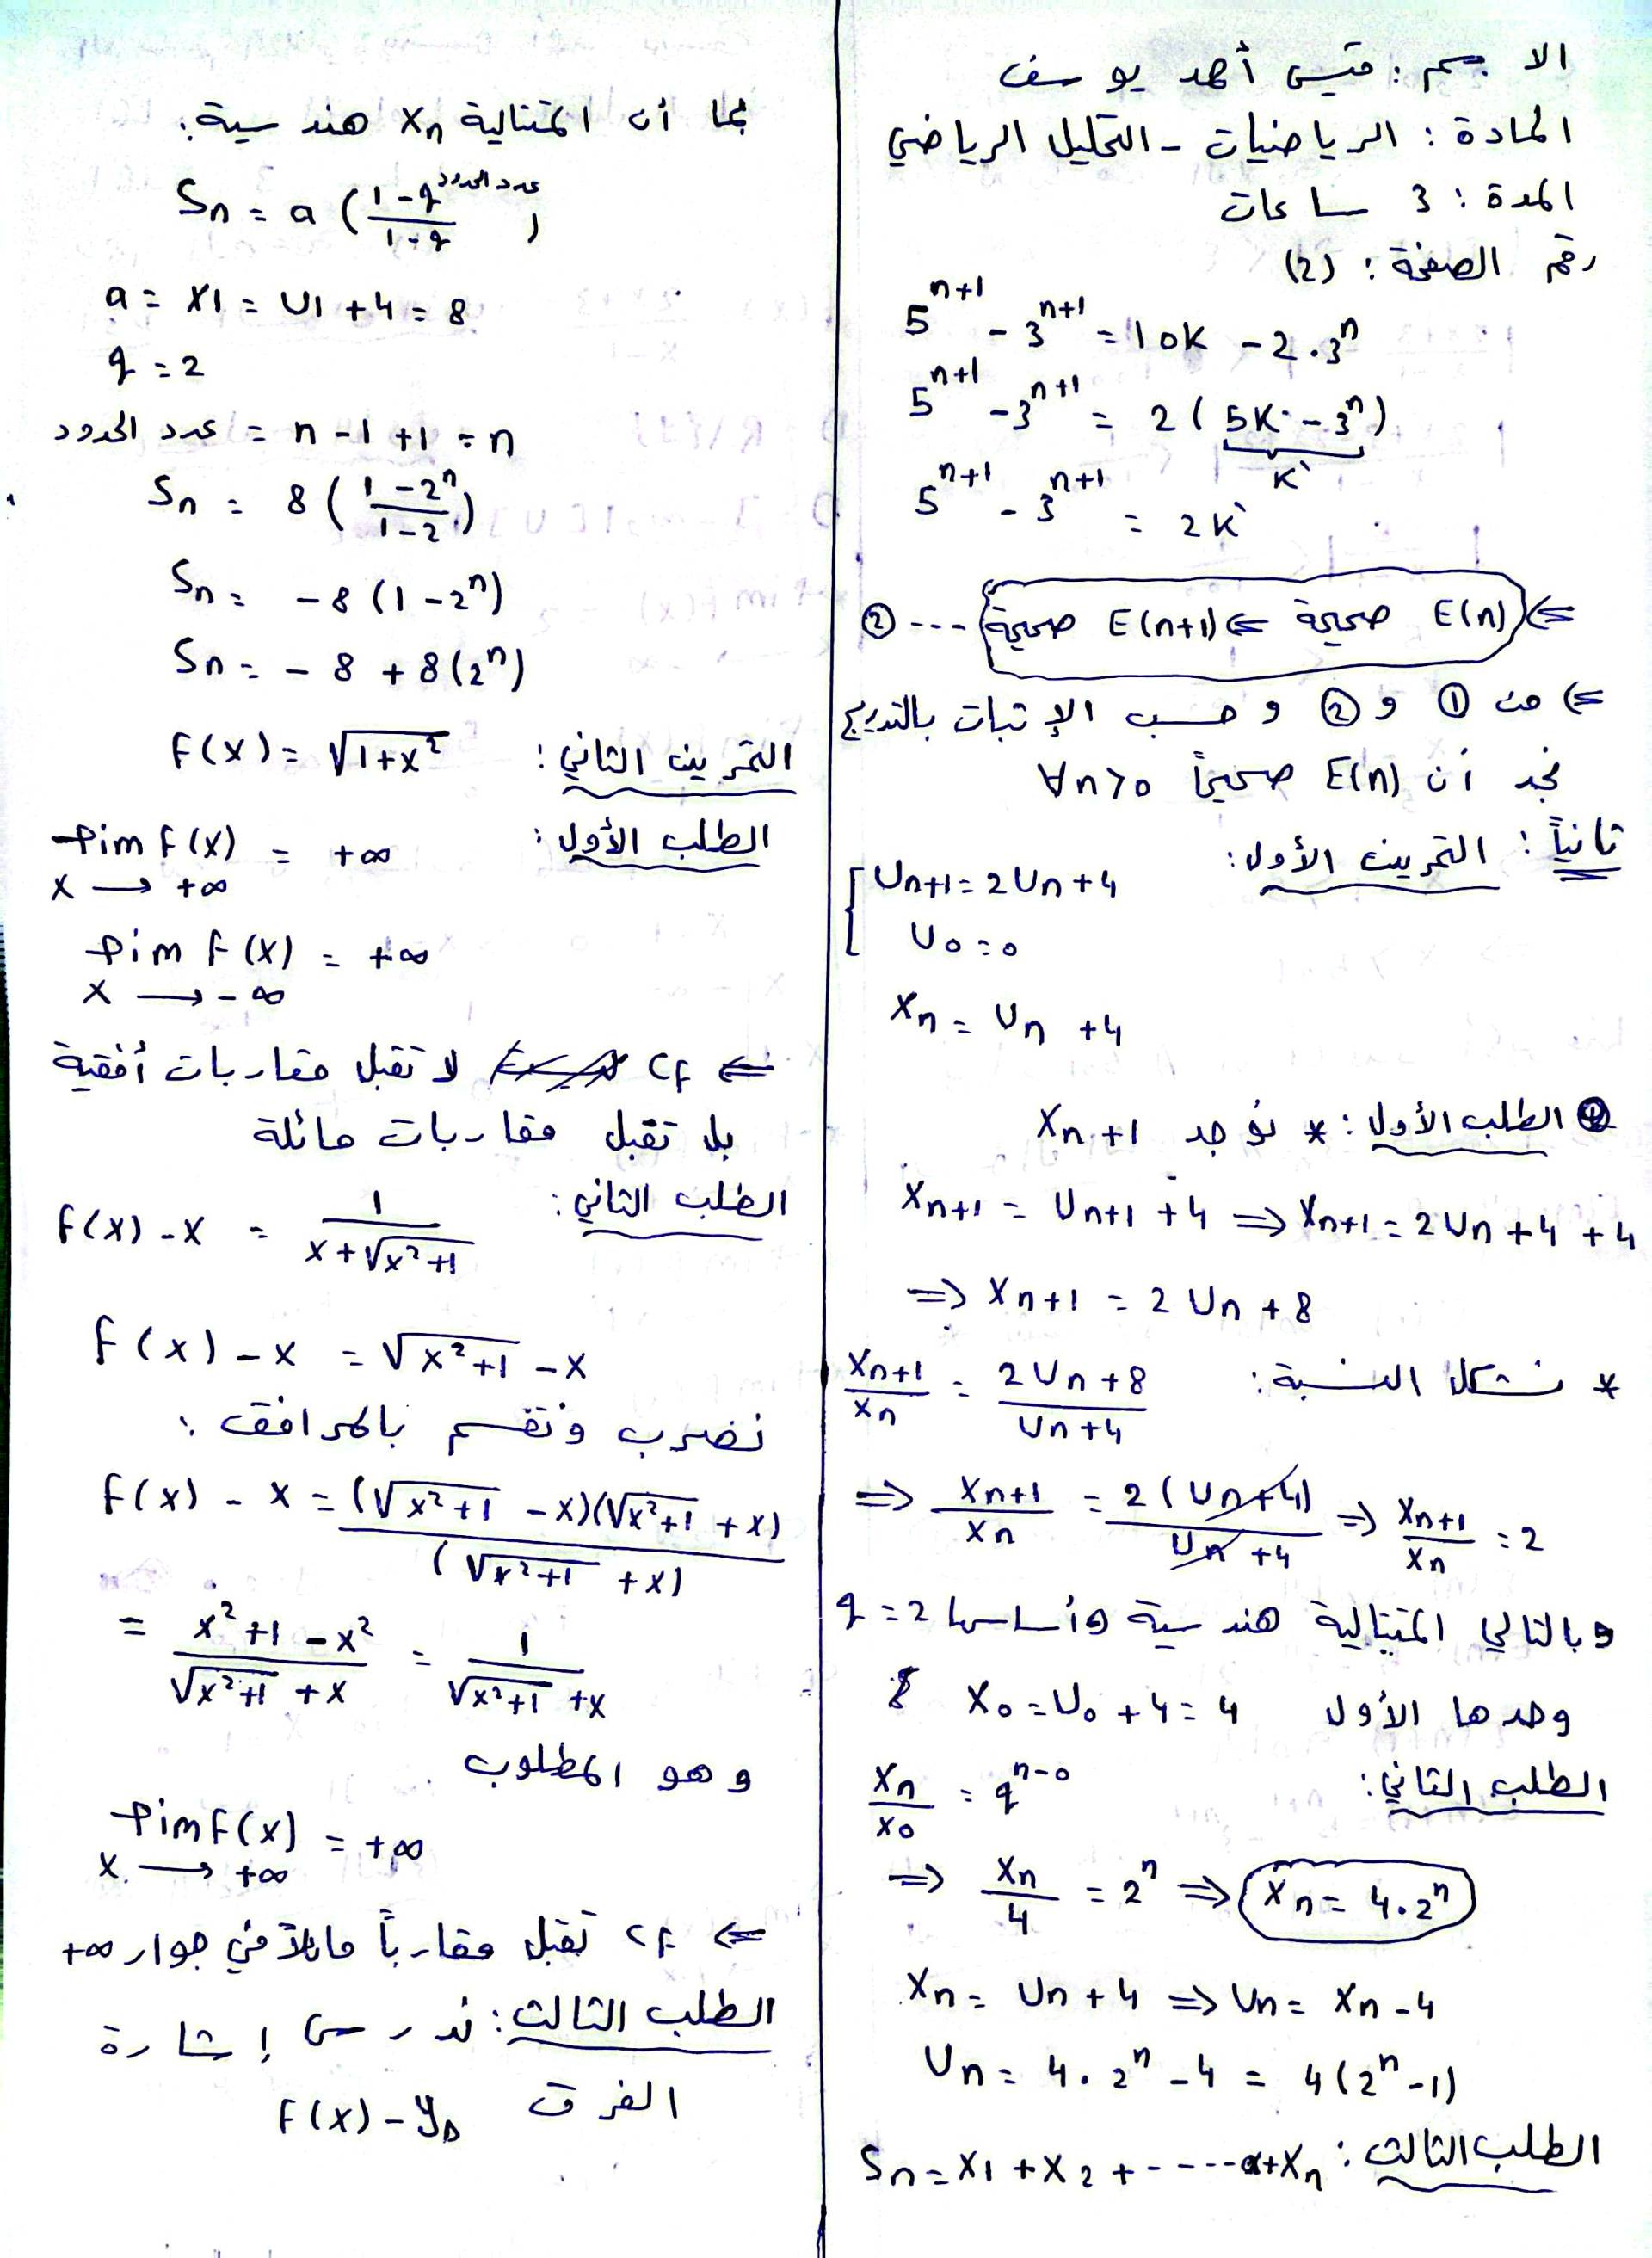 الاسم : قيس أحمد يوسف
المادة : الرياضيات - التحليل الرياضي
المدة : 3 ساعات
رقم الصفحة : (2)
5^{n+1} - 3^{n+1} = 10K - 2.3^n
5^{n+1} - 3^{n+1} = 2(5K - 3^n)
K`
5^{n+1} - 3^{n+1} = 2K`
⇐ E(n) صحيحة ⇐ E(n+1) صحيحة ... ②
⇐ من ① و ② وحسب الإثبات بالتدريج
نجد أن E(n) صحيحاً ∀n>0
ثانياً : التمرين الأول :
{ Un+1 = 2Un + 4
U0 = 0
Xn = Un + 4
الطلب الأول : * نوجد Xn+1
Xn+1 = Un+1 + 4 ⇒ Xn+1 = 2Un + 4 + 4
⇒ Xn+1 = 2Un + 8
* نشكل النسبة : Xn+1/Xn = (2Un + 8)/(Un + 4)
⇒ Xn+1/Xn = 2(Un+4)/(Un+4) ⇒ Xn+1/Xn = 2
وبالتالي المتتالية هندسية وأساسها q = 2
وحدها الأول X0 = U0 + 4 = 4
الطلب الثاني : Xn/X0 = q^{n-0}
⇒ Xn/4 = 2^n ⇒ Xn = 4.2^n
Xn = Un + 4 ⇒ Un = Xn - 4
Un = 4.2^n - 4 = 4(2^n - 1)
الطلب الثالث : Sn = X1 + X2 + ----- + Xn
بما أن المتتالية Xn هندسية :
Sn = a((1 - q^{عدد الحدود})/(1 - q))
a = X1 = U1 + 4 = 8
q = 2
عدد الحدود = n - 1 + 1 = n
Sn = 8((1 - 2^n)/(1 - 2))
Sn = -8(1 - 2^n)
Sn = -8 + 8(2^n)
التمرين الثاني : F(x) = √(1+x²)
الطلب الأول : lim f(x) = +∞
x → +∞
lim f(x) = +∞
x → -∞
⇐ CF لا تقبل مقاربات أفقية
بل تقبل مقاربات مائلة
الطلب الثاني : f(x) - x = 1/(x + √(x²+1))
f(x) - x = √(x²+1) - x
نضرب ونقسم بالمرافق :
f(x) - x = (√(x²+1) - x)(√(x²+1) + x)/(√(x²+1) + x)
= (x² + 1 - x²)/(√(x²+1) + x) = 1/(√(x²+1) + x)
وهو المطلوب
lim f(x) = +∞
x → +∞
⇐ CF تقبل مقارباً مائلاً في جوار +∞
الطلب الثالث : ندرس إشارة
الفرق f(x) - yΔ